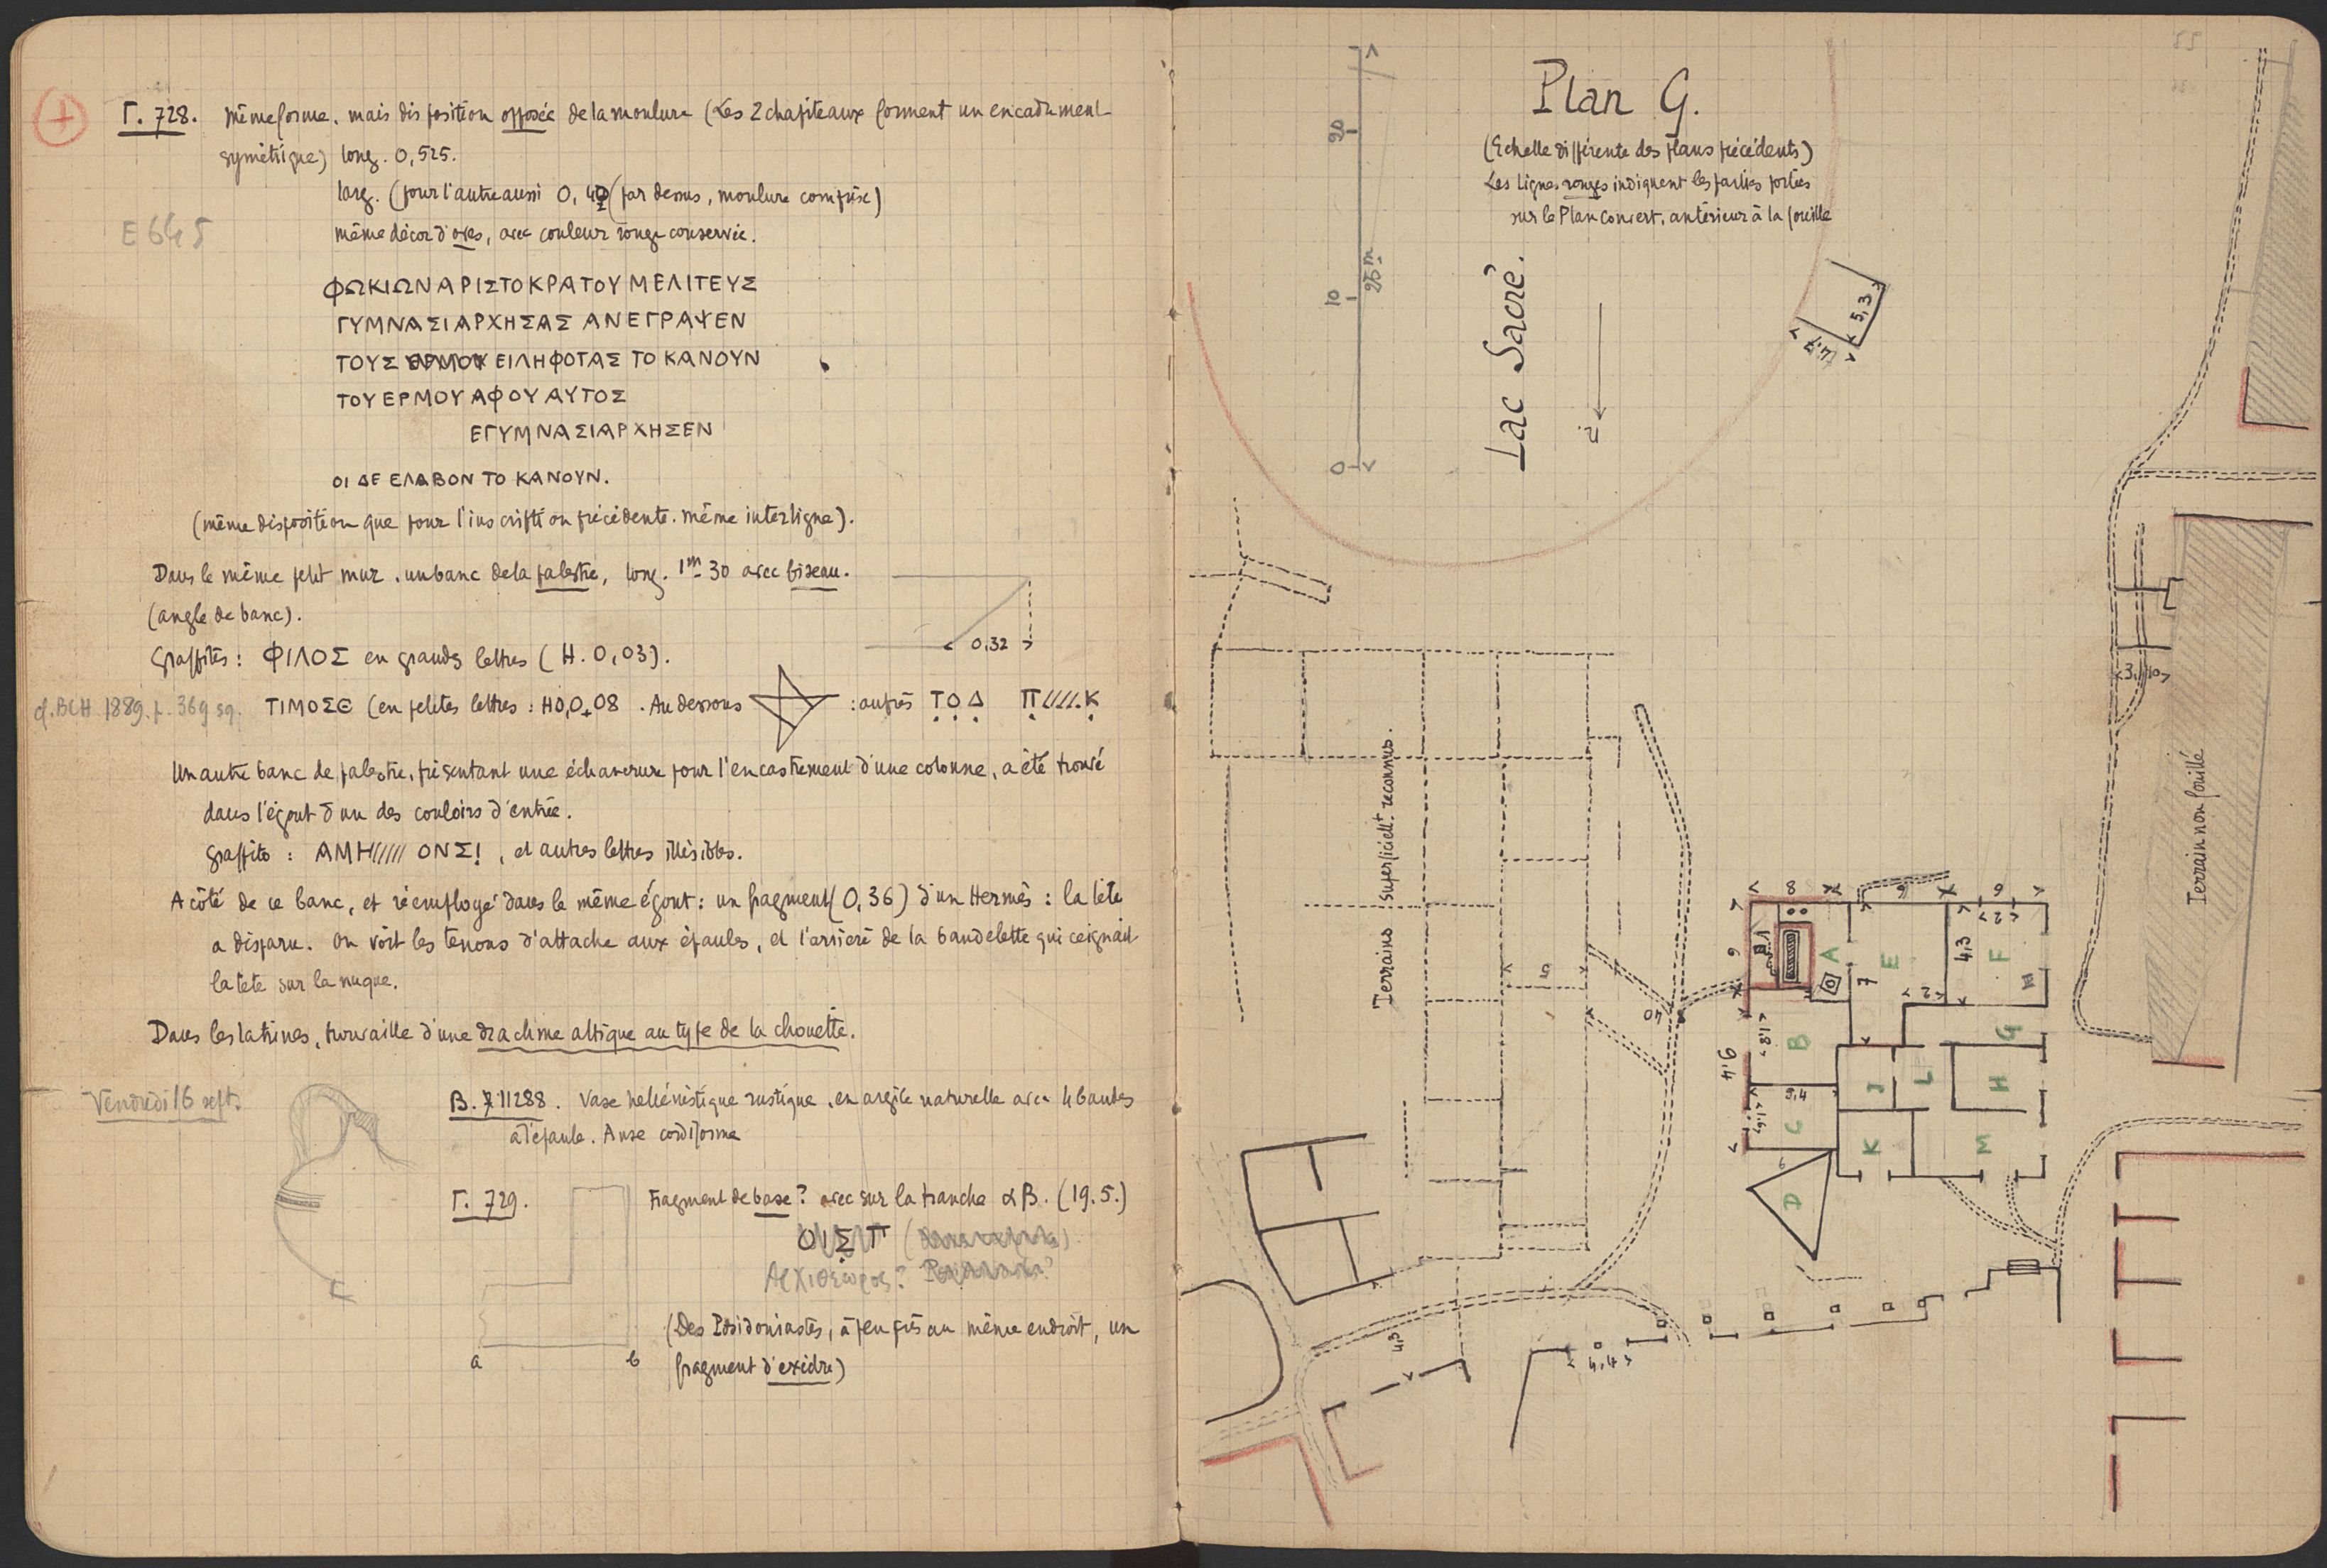 Γ. 728. Même forme, mais disposition opposée de la moulure (Les 2 chapiteaux forment un encadrement
symétrique) long. 0,525.
larg. (pour l'autre aussi 0, (par dessus, moulure comprise)
E 645
même décor d'oves, avec couleur rouge conservée.
ΦΩΚΙΩΝΑΡΙΣΤΟΚΡΑΤΟΥΜΕΛΙΤΕΥΣ
ΓΥΜΝΑΣΙΑΡΧΗΣΑΣ ΑΝΕΓΡΑΨΕΝ
ΤΟΥΣ ΕΙΛΗΦΟΤΑΣ ΤΟ ΚΑΝΟΥΝ
ΤΟΥΕΡΜΟΥΑΦΟΥΑΥΤΟΣ
ΕΓΥΜΝΑΣΙΑΡΧΗΣΕΝ
ΟΙ ΔΕ ΕΛΑΒΟΝ ΤΟ ΚΑΝΟΥΝ.
(même disposition que pour l'inscription précédente. même interligne).
Dans le même petit mur, un banc de la palestre, long. 1m 30 avec biseau.
(angle de banc).
0,32
Graffites : ΦΙΛΟΣ en grandes lettres (H. 0,03).
cf. BCH 1889. p. 369 sq.
ΤΙΜΟΣΘ (en petites lettres : H 0,008. Au dessous : autres ΤΟΔ Π////.Κ
Un autre banc de palestre, présentant une échancrure pour l'encastrement d'une colonne, a été trouvé
dans l'égout d'un des couloirs d'entrée.
graffito : ΑΜΗ///// ΟΝΣ! , et autres lettres illisibles.
A côté de ce banc, et réemployé dans le même égout : un fragment (0,36) d'un Hermès : la tête
a disparu. On voit les tenons d'attache aux épaules, et l'arrière de la bandelette qui ceignait
la tete sur la nuque.
Dans les latrines, trouvaille d'une drachme attique au type de la chouette.
Vendredi 16 sept.
B. 11288. Vase hellénistique rustique, en argile naturelle avec 4 bandes
à l'épaule. Anse cordiforme
Γ. 729. Fragment de base ? avec sur la tranche αβ. (19.5.)
ΟΙΣΠ
Αρχιθέωρος ?
(Des Posidoniastes, à peu près au même endroit, un
fragment d'exèdre)
a b
55
Plan G.
(Echelle différente des plans précédents)
Les lignes rouges indiquent les parties portées
sur le Plan Convert, antérieur à la fouille
20
25 m
10
0
Lac Sacré.
N.
5,3
4,7
3,10
Terrains superficiellt reconnus.
Terrain non fouillé
5
40
8
6
6
6
<2>
4,3
7
<2>
A
E
F
B
G
J
L
H
C
K
M
D
1,8
9,4
9,4
1,9
6
4,3
4,4